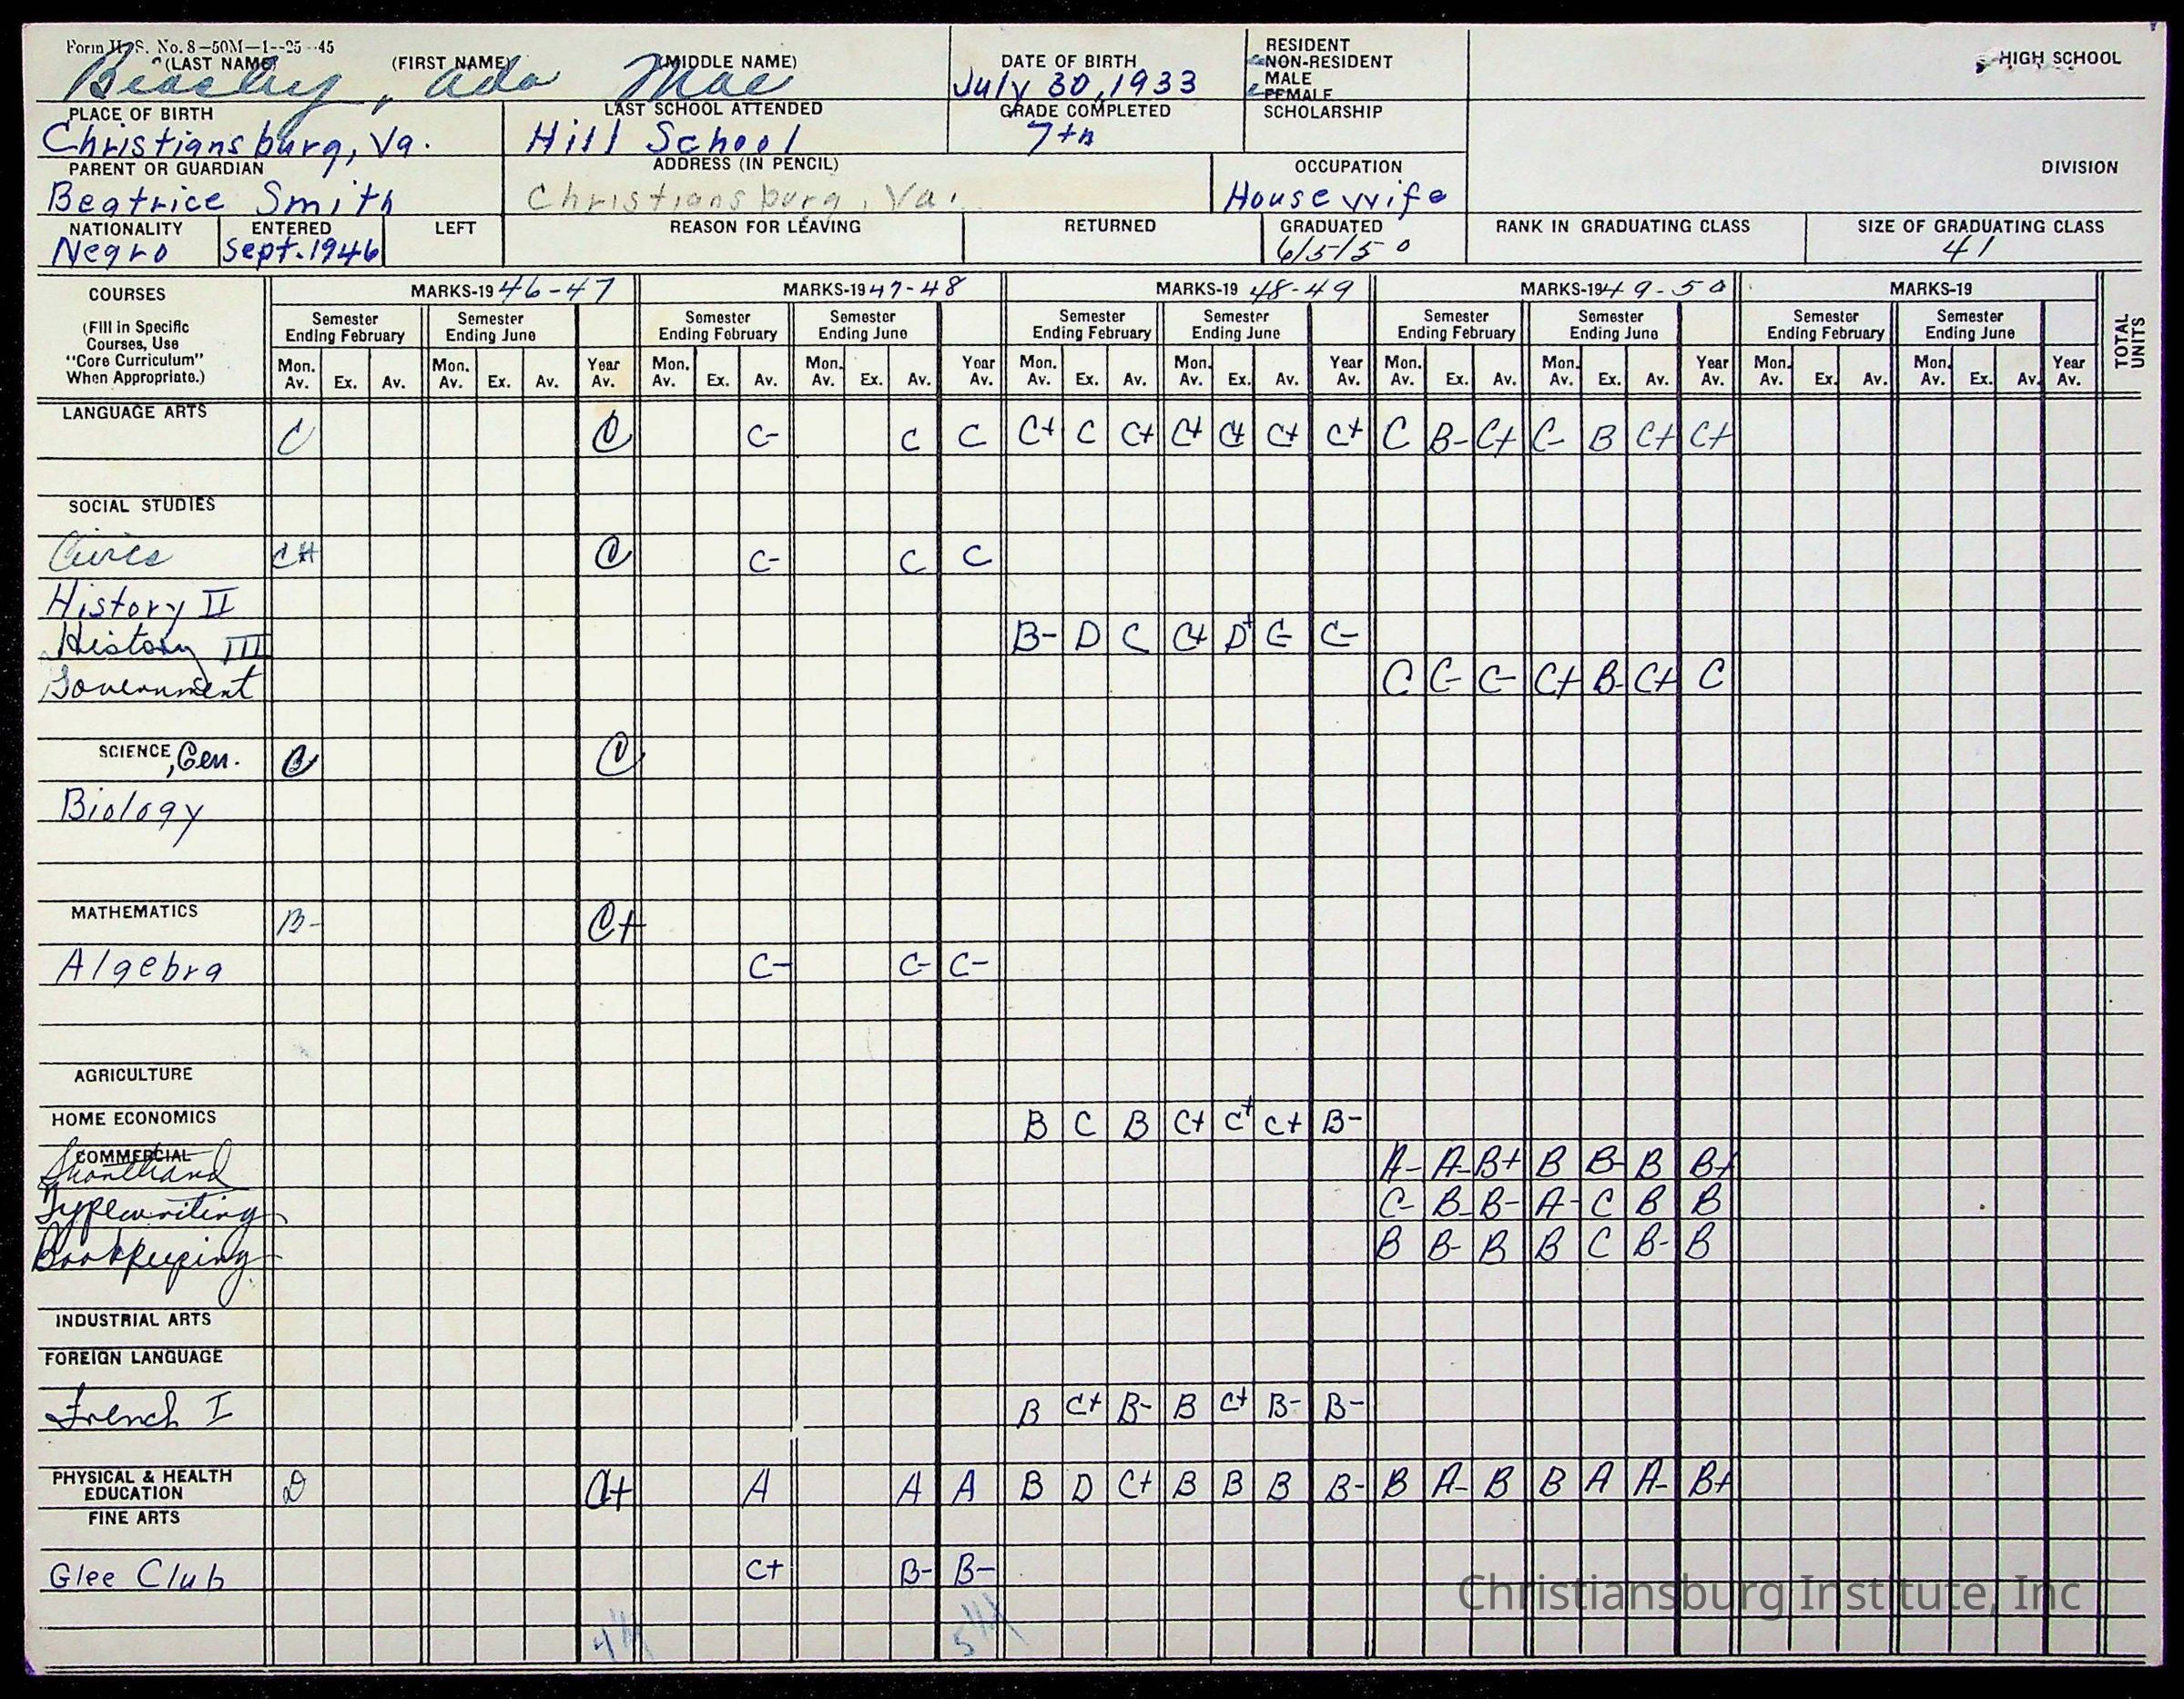 Form H. S. No. 8—50M—1--25--45
(LAST NAME) (FIRST NAME) (MIDDLE NAME) DATE OF BIRTH RESIDENT
NON-RESIDENT
MALE
FEMALE
HIGH SCHOOL
Beasley, Ada Mae July 30, 1933
PLACE OF BIRTH LAST SCHOOL ATTENDED GRADE COMPLETED SCHOLARSHIP
Christiansburg, Va. Hill School 7th
PARENT OR GUARDIAN ADDRESS (IN PENCIL) OCCUPATION DIVISION
Beatrice Smith Christiansburg, Va. Housewife
NATIONALITY ENTERED LEFT REASON FOR LEAVING RETURNED GRADUATED RANK IN GRADUATING CLASS SIZE OF GRADUATING CLASS
Negro Sept. 1946 6/5/50 41
COURSES MARKS-19 46-47 MARKS-19 47-48 MARKS-19 48-49 MARKS-19 49-50 MARKS-19 TOTAL UNITS
(Fill in Specific Semester Semester Semester Semester Semester Semester Semester Semester Semester Semester
Courses, Use Ending February Ending June Ending February Ending June Ending February Ending June Ending February Ending June Ending February Ending June
"Core Curriculum" Mon. Mon. Year Mon. Mon. Year Mon. Mon. Year Mon. Mon. Year Mon. Mon. Year
When Appropriate.) Av. Ex. Av. Av. Ex. Av. Av. Av. Ex. Av. Av. Ex. Av. Av. Av. Ex. Av. Av. Ex. Av. Av. Av. Ex. Av. Av. Ex. Av. Av. Av. Ex. Av. Av. Ex. Av. Av.
LANGUAGE ARTS
C C C- C C C+ C C+ C+ C+ C+ C+ C B- C+ C- B C+ C+
SOCIAL STUDIES
Civics C+ C C- C C
History II
History III B- D C C+ D+ C- C-
Government C C- C- C+ B- C+ C
SCIENCE, Gen. C C
Biology
MATHEMATICS B- C+
Algebra C- C- C-
AGRICULTURE
HOME ECONOMICS B C B C+ C+ C+ B-
COMMERCIAL
Shorthand A- A- B+ B B- B B+
Typewriting C- B- B- A- C B B
Bookkeeping B B- B B C B- B
INDUSTRIAL ARTS
FOREIGN LANGUAGE
French I B C+ B- B C+ B- B-
PHYSICAL & HEALTH
EDUCATION D C+ A A A B D C+ B B B B- B A- B B A A- B+
FINE ARTS
Glee Club C+ B- B-
Christiansburg Institute, Inc